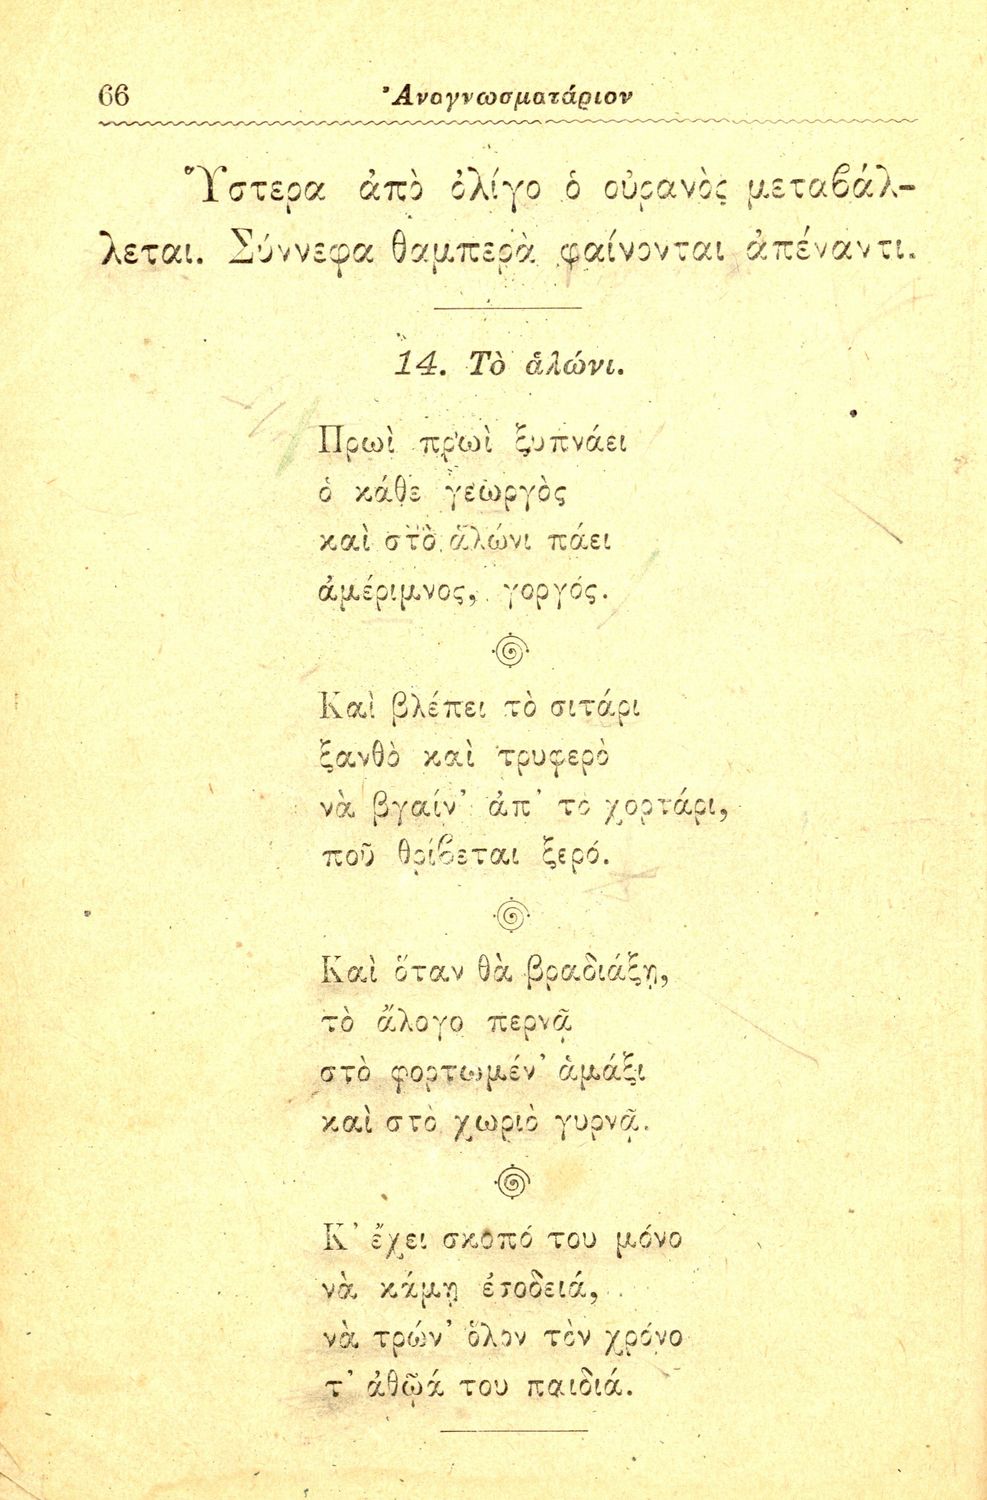 66
Ἀναγνωσματάριον
Ὕστερα ἀπὸ ὀλίγο ὁ οὐρανὸς μεταβάλ-
λεται. Σύννεφα θαμπερὰ φαίνονται ἀπέναντι.
14. Τὸ ἁλώνι.
Πρωὶ πρωὶ ξυπνάει
ὁ κάθε γεωργὸς
καὶ στὸ ἁλώνι πάει
ἀμέριμνος, γοργός.
Καὶ βλέπει τὸ σιτάρι
ξανθὸ καὶ τρυφερὸ
νὰ βγαίν' ἀπ' τὸ χορτάρι,
ποῦ θρίβεται ξερό.
Καὶ ὅταν θὰ βραδιάξῃ,
τὸ ἄλογο περνᾷ
στὸ φορτωμέν' ἁμάξι
καὶ στὸ χωριὸ γυρνᾷ.
Κ' ἔχει σκοπό του μόνο
νὰ κάμῃ ἐσοδειά,
νὰ τρών' ὅλον τὸν χρόνο
τ' ἀθῷά του παιδιά.